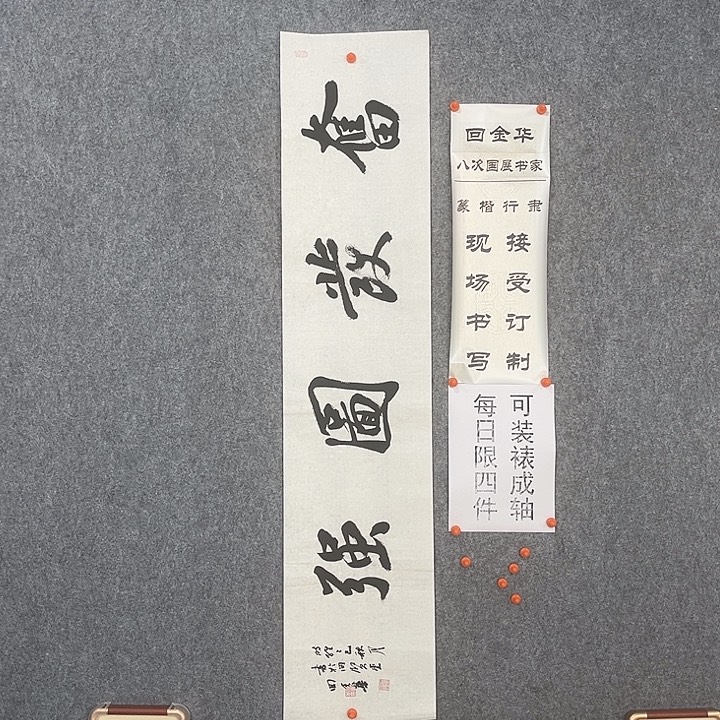 奮發圖强
回金华
八次国展书家
篆楷行隶
接受订制
现场书写
可装裱成轴
每日限四件